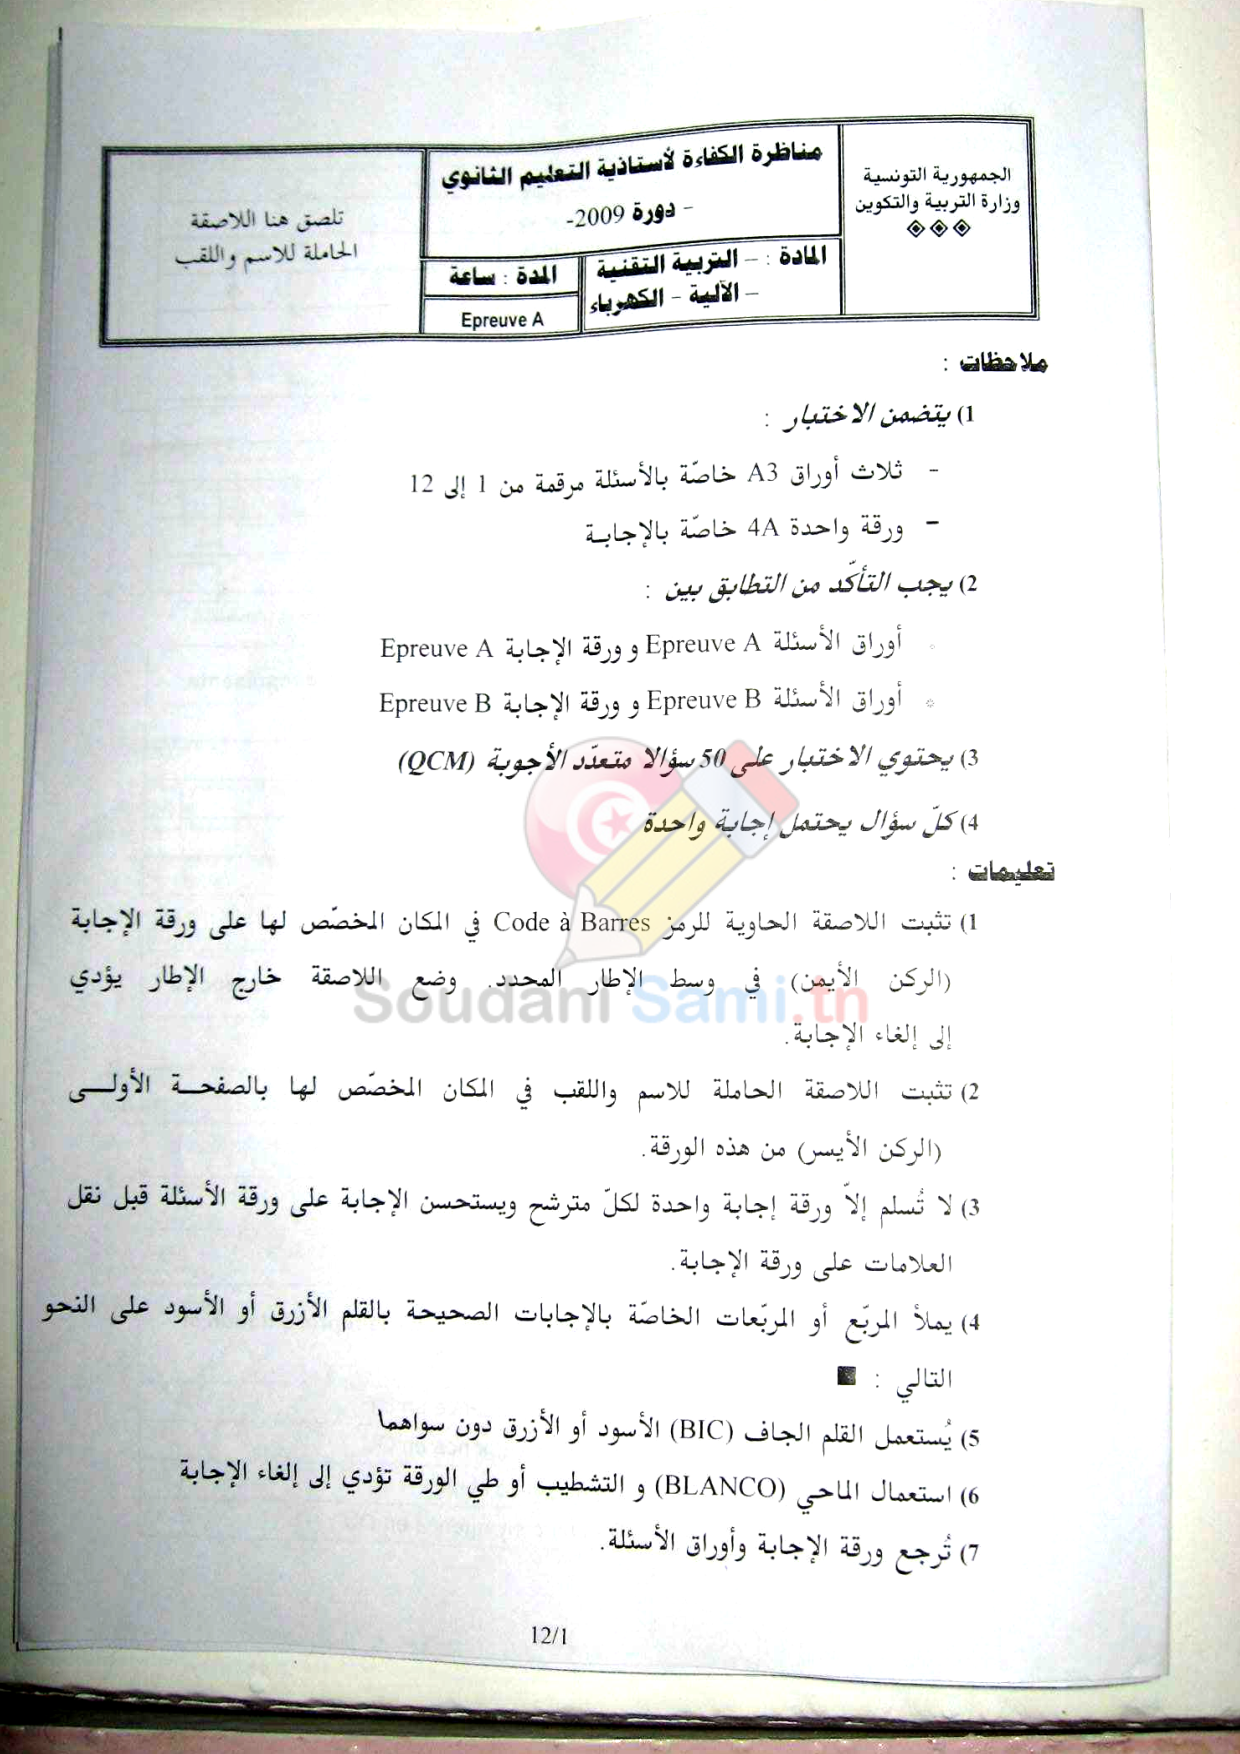 الجمهورية التونسية
وزارة التربية والتكوين
مناظرة الكفاءة لأستاذية التعليم الثانوي
- دورة 2009-
المادة : – التربية التقنية
– الآلية - الكهرباء
المدة : ساعة
Epreuve A
تلصق هنا اللاصقة
الحاملة للاسم واللقب
ملاحظات :
1) يتضمن الاختبار :
- ثلاث أوراق A3 خاصّة بالأسئلة مرقمة من 1 إلى 12
- ورقة واحدة 4A خاصّة بالإجابة
2) يجب التأكّد من التطابق بين :
أوراق الأسئلة Epreuve A و ورقة الإجابة Epreuve A
أوراق الأسئلة Epreuve B و ورقة الإجابة Epreuve B
3) يحتوي الاختبار على 50 سؤالا متعدّد الأجوبة (QCM)
4) كلّ سؤال يحتمل إجابة واحدة
تعليمات :
1) تثبت اللاصقة الحاوية للرمز Code à Barres في المكان المخصّص لها على ورقة الإجابة
(الركن الأيمن) في وسط الإطار المحدد. وضع اللاصقة خارج الإطار يؤدي
إلى إلغاء الإجابة.
Soudani Sami.tn
2) تثبت اللاصقة الحاملة للاسم واللقب في المكان المخصّص لها بالصفحة الأولى
(الركن الأيسر) من هذه الورقة.
3) لا تُسلم إلاّ ورقة إجابة واحدة لكلّ مترشح ويستحسن الإجابة على ورقة الأسئلة قبل نقل
العلامات على ورقة الإجابة.
4) يملأ المربّع أو المربّعات الخاصّة بالإجابات الصحيحة بالقلم الأزرق أو الأسود على النحو
التالي : ■
5) يُستعمل القلم الجاف (BIC) الأسود أو الأزرق دون سواهما
6) استعمال الماحي (BLANCO) و التشطيب أو طي الورقة تؤدي إلى إلغاء الإجابة
7) تُرجع ورقة الإجابة وأوراق الأسئلة.
12/1